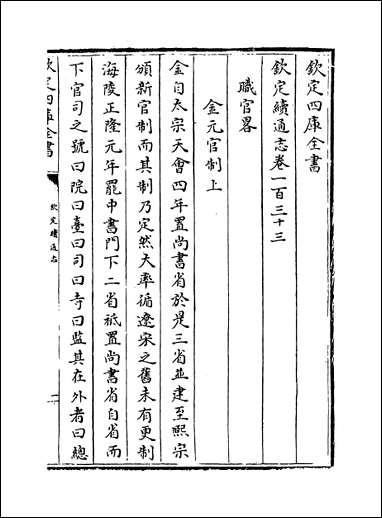 欽定四庫全書
欽定續通志卷一百三十三
職官畧
金元官制上
金自太宗天會四年置尚書省於是三省並建至熙宗
頒新官制而其制乃定然大率循遼宋之舊未有更制
海陵正隆元年罷中書門下二省祗置尚書省自省而
下官司之號曰院曰臺曰司曰寺曰監其在外者曰總
欽定四庫全書
欽定續通志
一